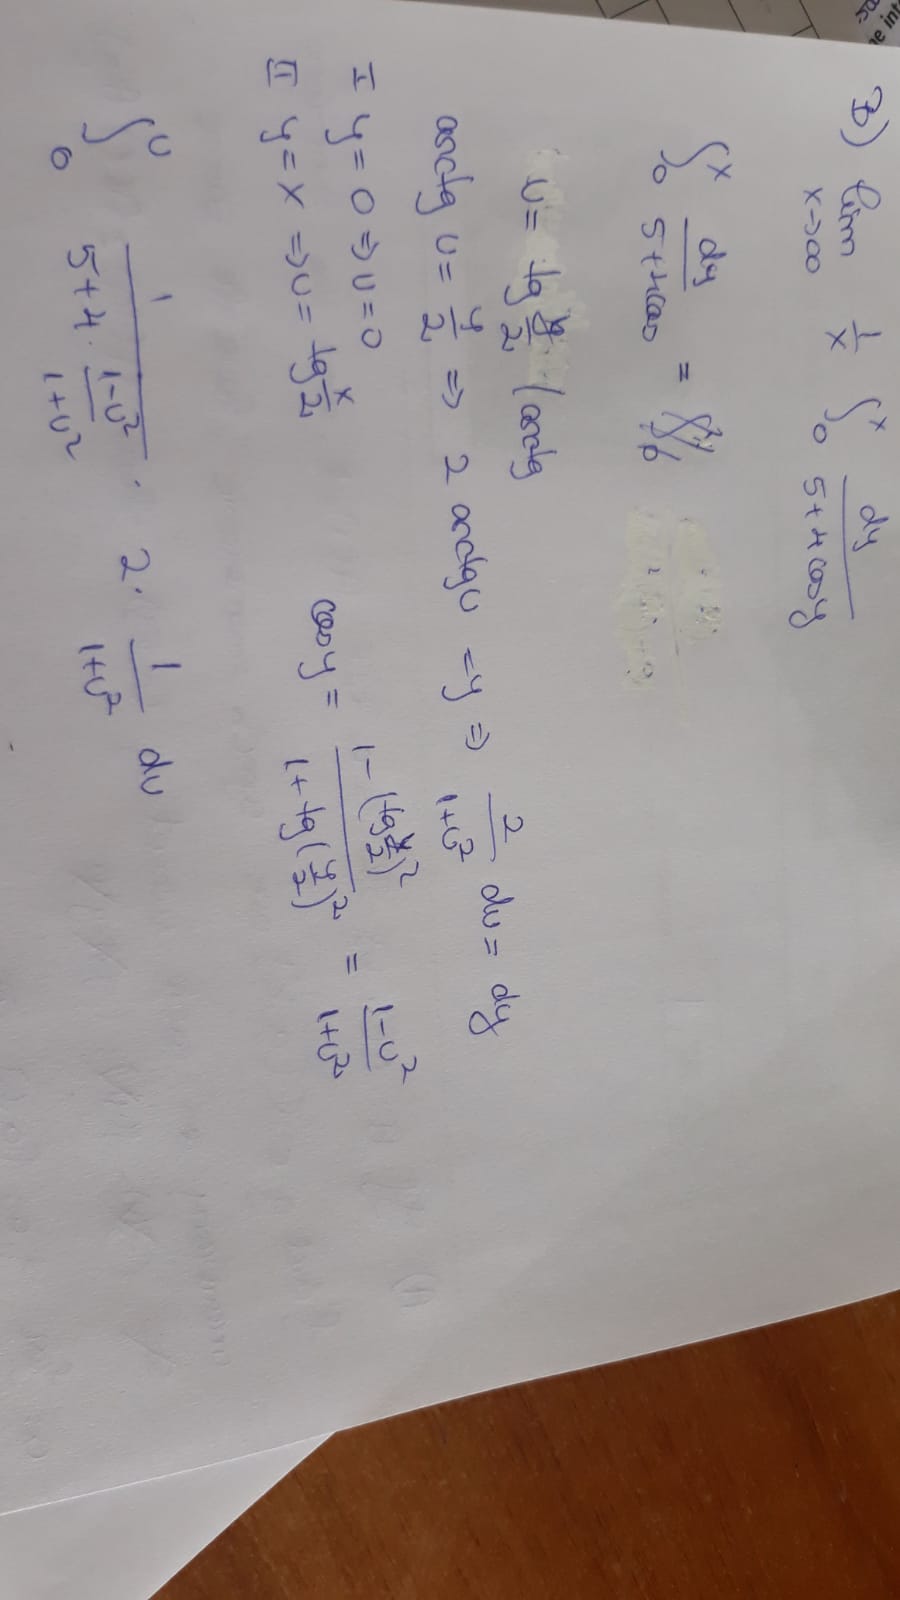 B) lim x→∞ 1/x ∫₀ˣ dy/(5+4cosy)
∫₀ˣ dy/(5+4cos =
u = tg y/2 / arctg
arctg u = y/2 ⇒ 2 arctg u = y ⇒ 2/(1+u²) du = dy
I y = 0 ⇒ u = 0
II y = x ⇒ u = tg x/2
cos y = (1-(tg y/2)²)/(1+tg(y/2)²) = (1-u²)/(1+u²)
∫₀ᵘ 1/(5+4·(1-u²)/(1+u²)) · 2· 1/(1+u²) du